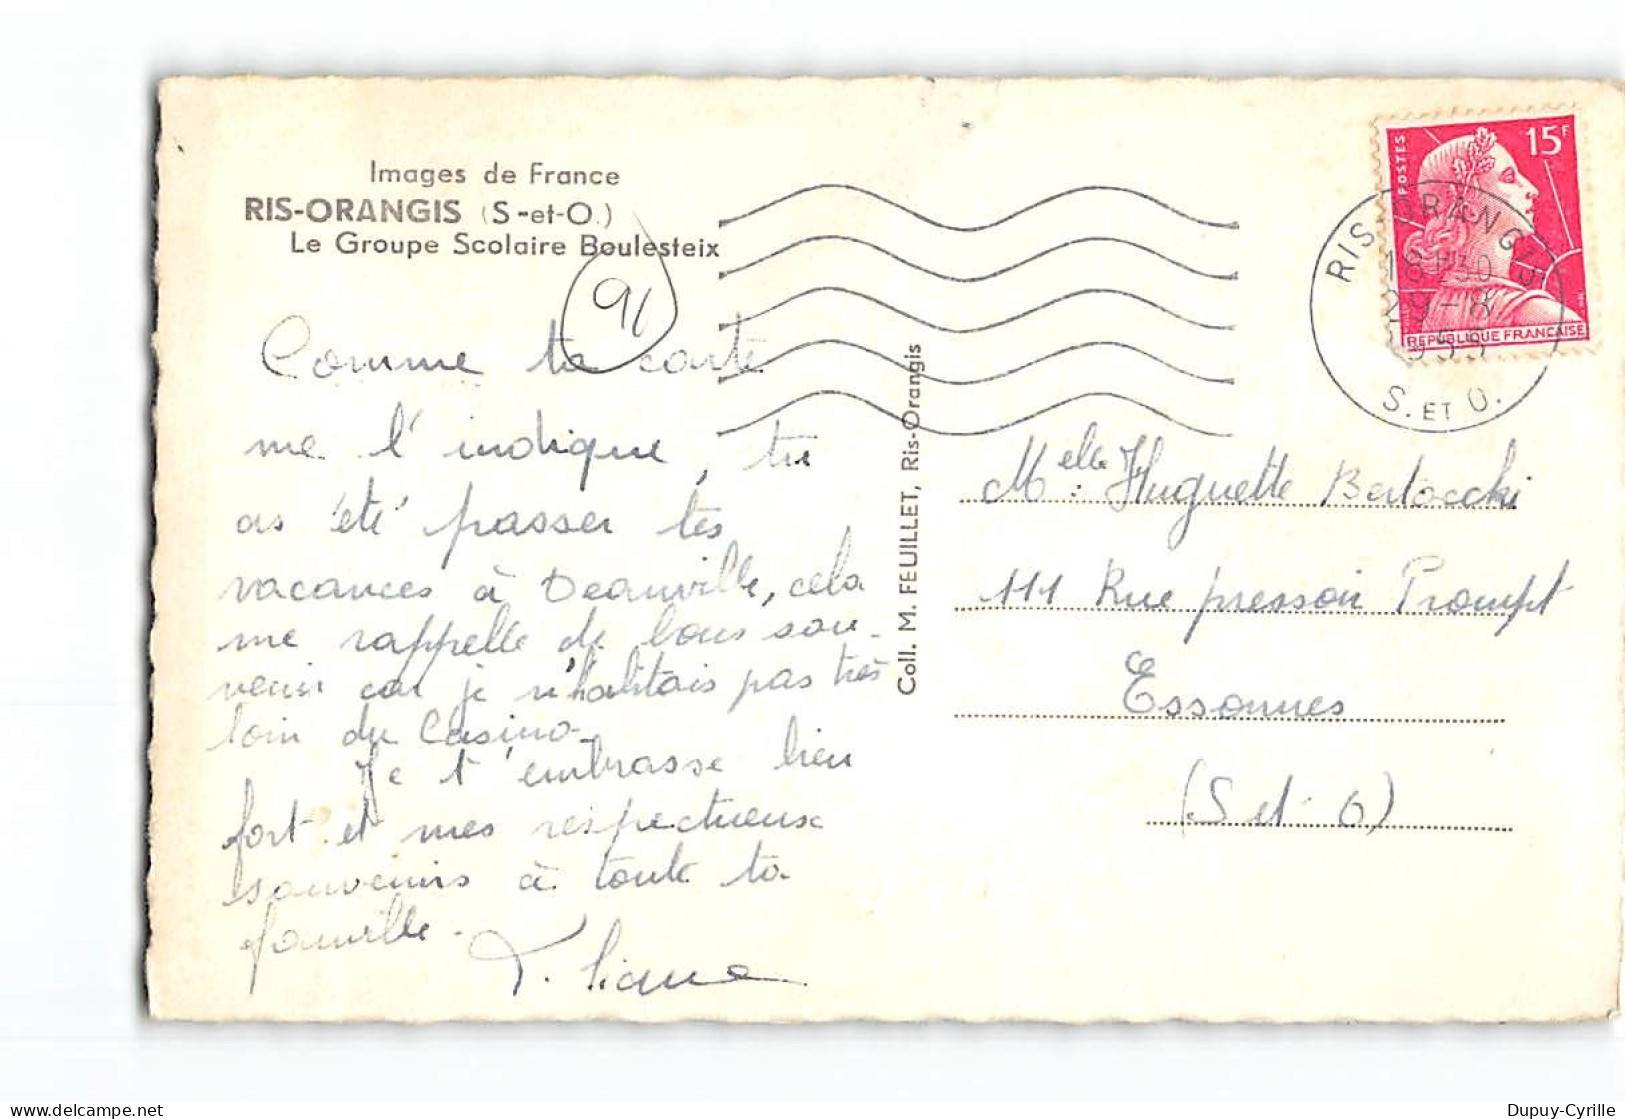 Images de France
RIS-ORANGIS (S-et-O.)
Le Groupe Scolaire Boulesteix
91
Comme ta carte
me l'indique, tu
as été passer tes
vacances à Deauville, cela
me rappelle de bons sou-
venir car je n'habitais pas très
loin du Casino.
Je t'embrasse bien
fort et mes respectueux
souvenirs à toute ta
famille.
Coll. M. FEUILLET, Ris-Orangis
POSTES
15F
REPUBLIQUE FRANÇAISE
RIS-ORANGIS
18H30
29-8
1955
S. ET O.
Melle: Huguette Bertocchi
111 Rue pressoir Prompt
Essonnes
(S et O)
Dupuy-Cyrille